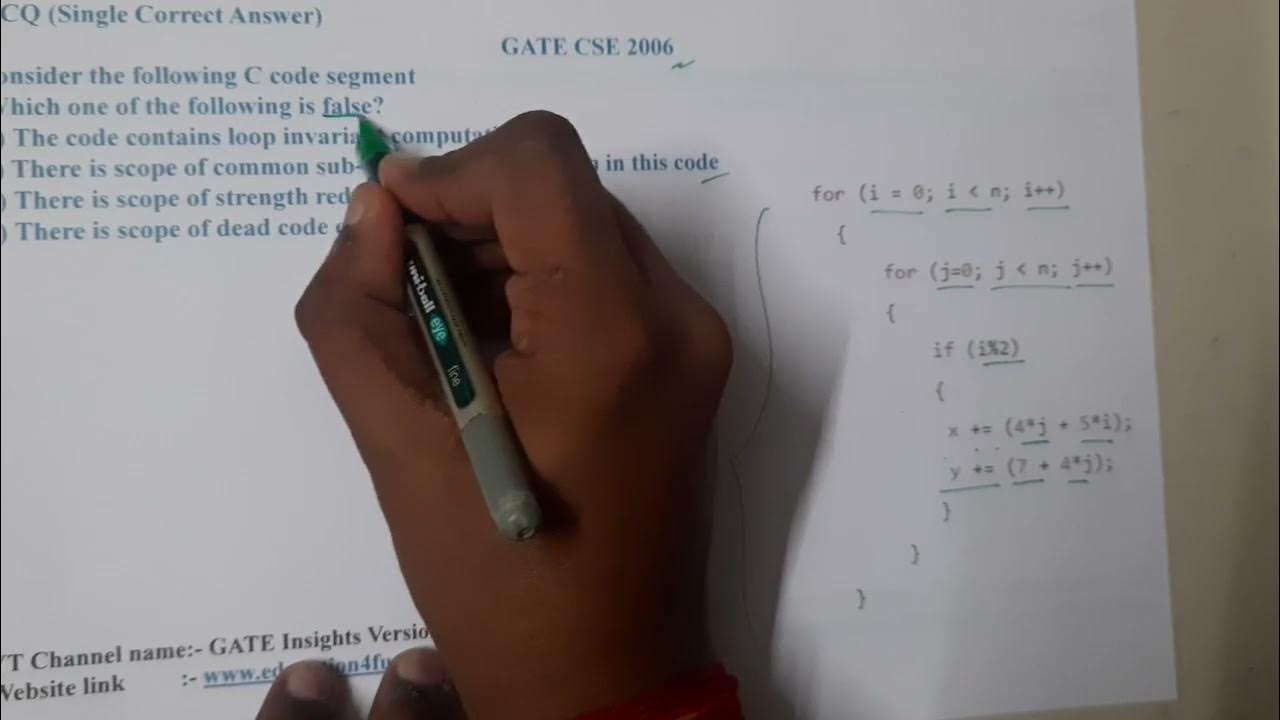 CQ (Single Correct Answer)
GATE CSE 2006
onsider the following C code segment
hich one of the following is false?
) The code contains loop invaria computa
) There is scope of common sub- in this code
) There is scope of strength red
) There is scope of dead code
for (i = 0; i < n; i++)
{
for (j=0; j < n; j++)
{
if (i%2)
{
x += (4*j + 5*i);
y += (7 + 4*j);
}
}
}
uniball eye
fine
T Channel name:- GATE Insights Versio
Website link :- www.ed ion4fu